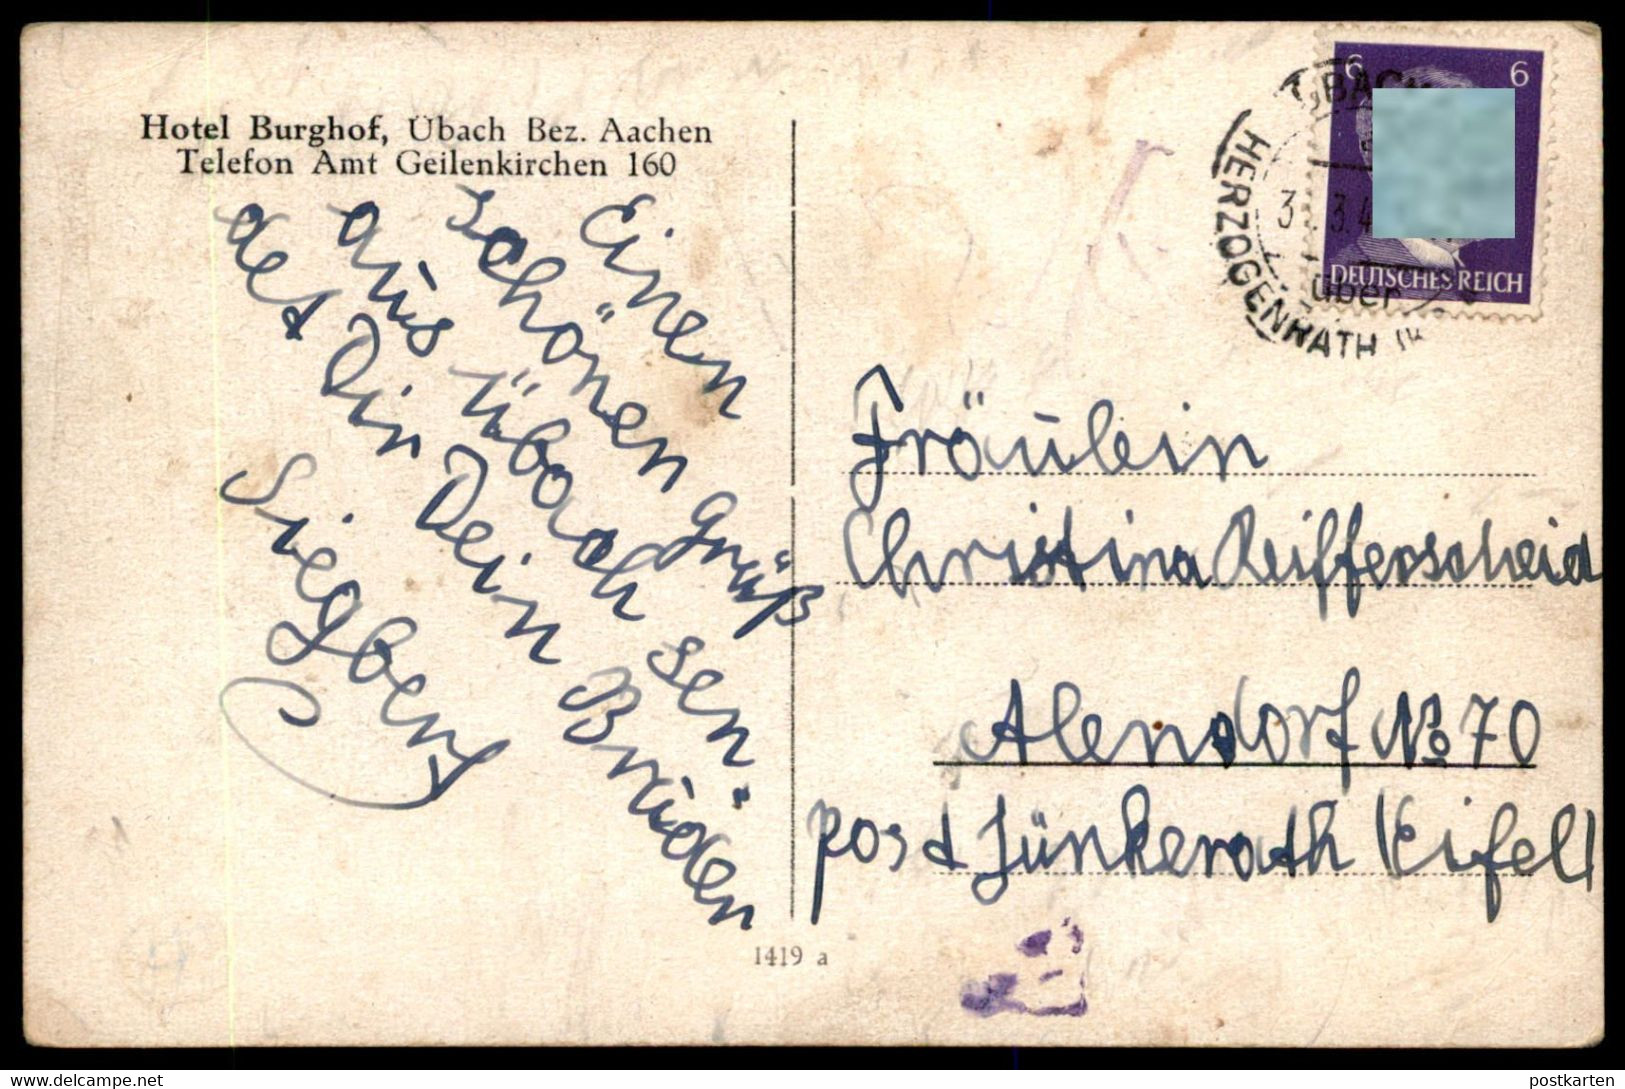 Hotel Burghof, Übach Bez. Aachen
Telefon Amt Geilenkirchen 160
Einen
schönen Gruß
aus Übach sen-
det Dir Dein Bruder
Siegbert
6 6
DEUTSCHES REICH
ÜBACH
3. 3.4
über
HERZOGENRATH
Fräulein
Christina Reifferscheid
Alendorf No 70
post Jünkerath (Eifel)
1419 a
postkarten